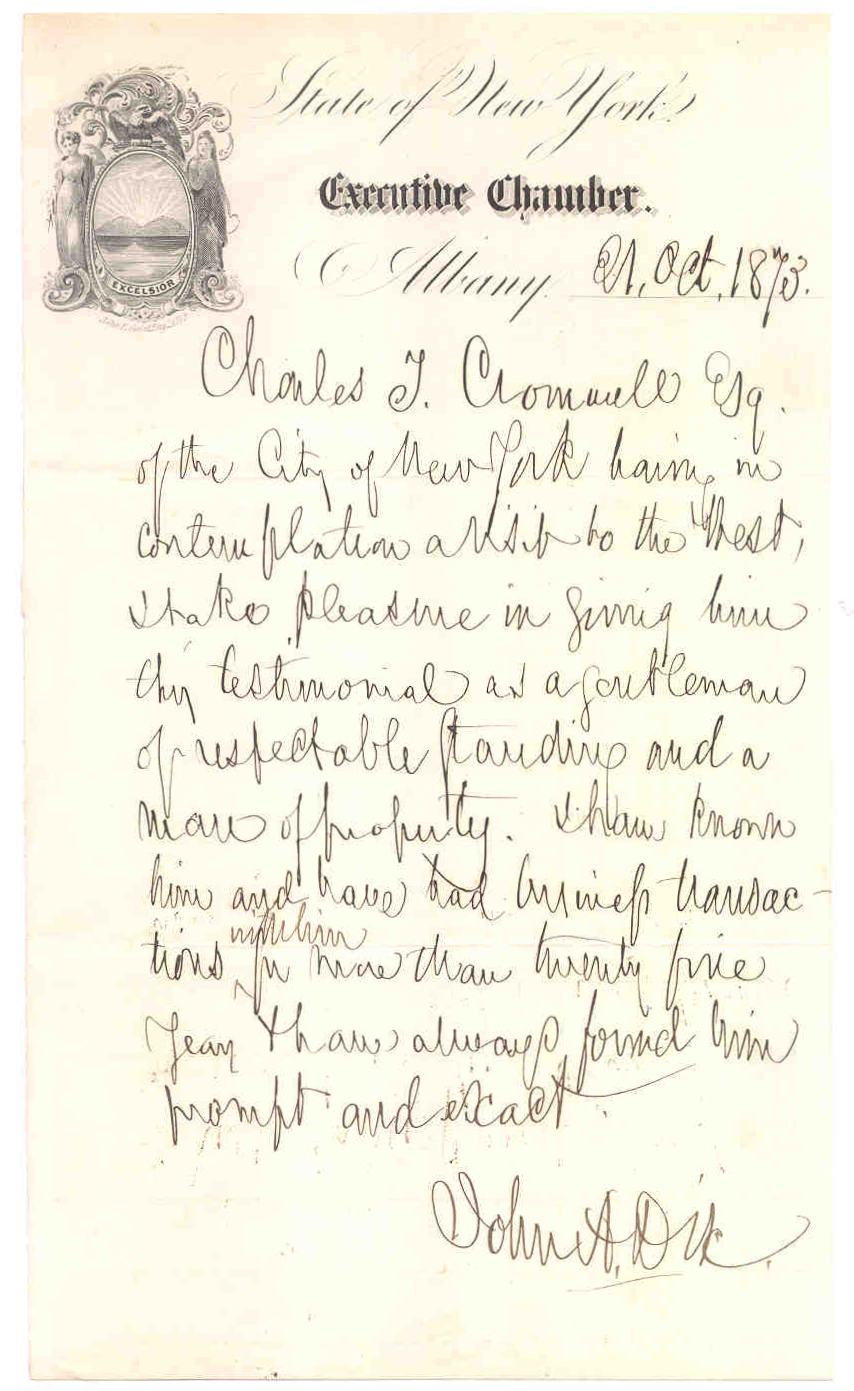 State of New York.
Executive Chamber.
Albany. 21, Oct, 1873.
EXCELSIOR
Charles T. Cromwell Esq.
of the City of New York having in
contemplation a visit to the West,
I take pleasure in giving him
this testimonial as a gentleman
of respectable standing and a
man of property. I have known
him and have had business transac-
with him
tions, for more than twenty five
years & have always found him
prompt and exact.
John A. Dix.